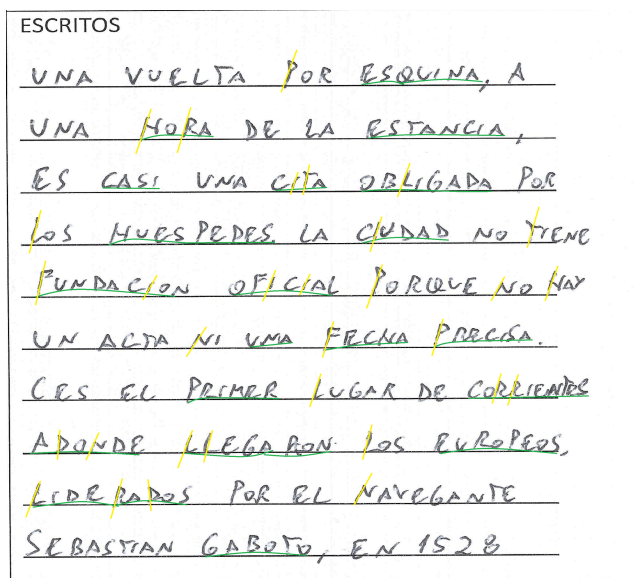 ESCRITOS
UNA VUELTA POR ESQUINA, A
UNA HORA DE LA ESTANCIA,
ES CASI UNA CITA OBLIGADA POR
LOS HUESPEDES. LA CIUDAD NO TIENE
FUNDACION OFICIAL PORQUE NO HAY
UN ACTA NI UNA FECHA PRECISA.
CES EL PRIMER LUGAR DE CORRIENTES
ADONDE LLEGARON LOS EUROPEOS,
LIDERADOS POR EL NAVEGANTE
SEBASTIAN GABOTO, EN 1528